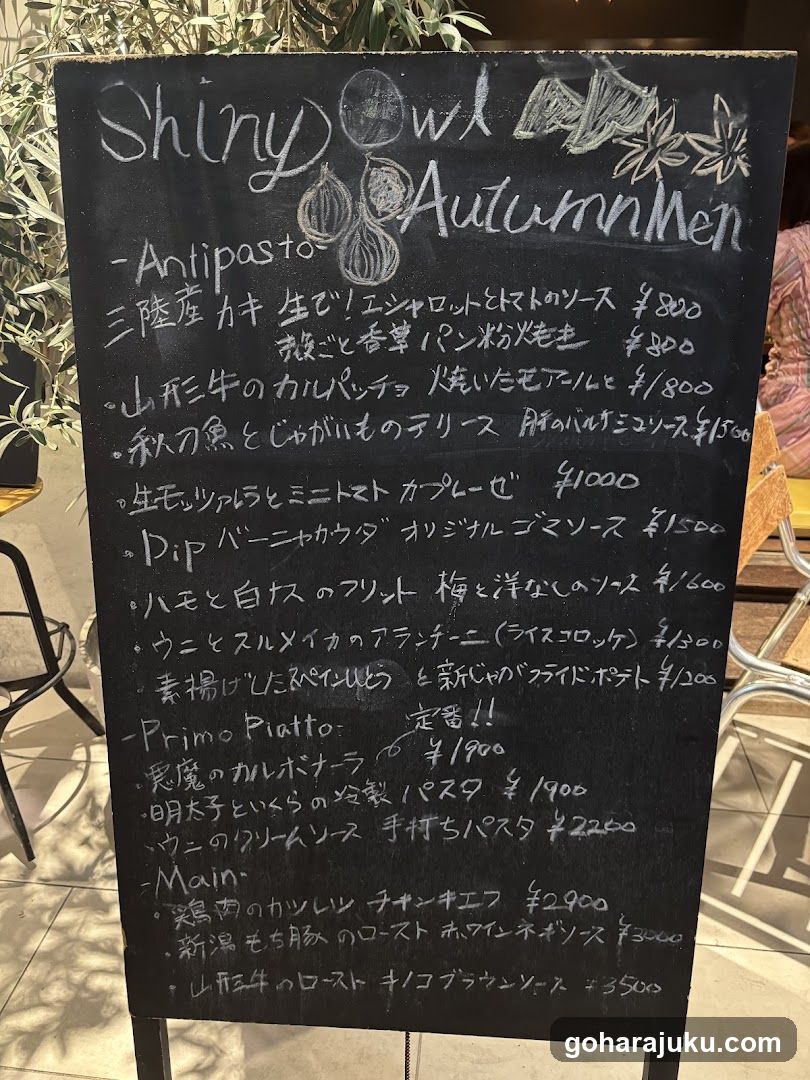 Shiny Owl
Autumn Men
-Antipasto-
三陸産カキ 生で!エシャロットとトマトのソース ¥800
殻ごと香草パン粉焼き ¥800
・山形牛のカルパッチョ 焼いたモアールと ¥1800
・秋刀魚とじゃがいものテリース 肝のバルサミコソース ¥1500
・生モッツァレラとミニトマト カプレーゼ ¥1000
・Dip バーニャカウダ オリジナルゴマソース ¥1500
・ハモと白ナスのフリット 梅と洋なしのソース ¥1600
・ウニとスルメイカのアランチーニ(ライスコロッケ) ¥1300
・素揚げしたスペイン と新じゃがフライドポテト ¥1200
-Primo Piatto- 定番!!
・悪魔のカルボナーラ ¥1900
・明太子といくらの冷製パスタ ¥1900
・ウニのクリームソース 手打ちパスタ ¥2200
-Main-
・鶏肉のカツレツ チキンキエフ ¥2900
・新潟もち豚のロースト 赤ワインネギソース ¥3000
・山形牛のロースト キノコブラウンソース ¥3500
goharajuku.com